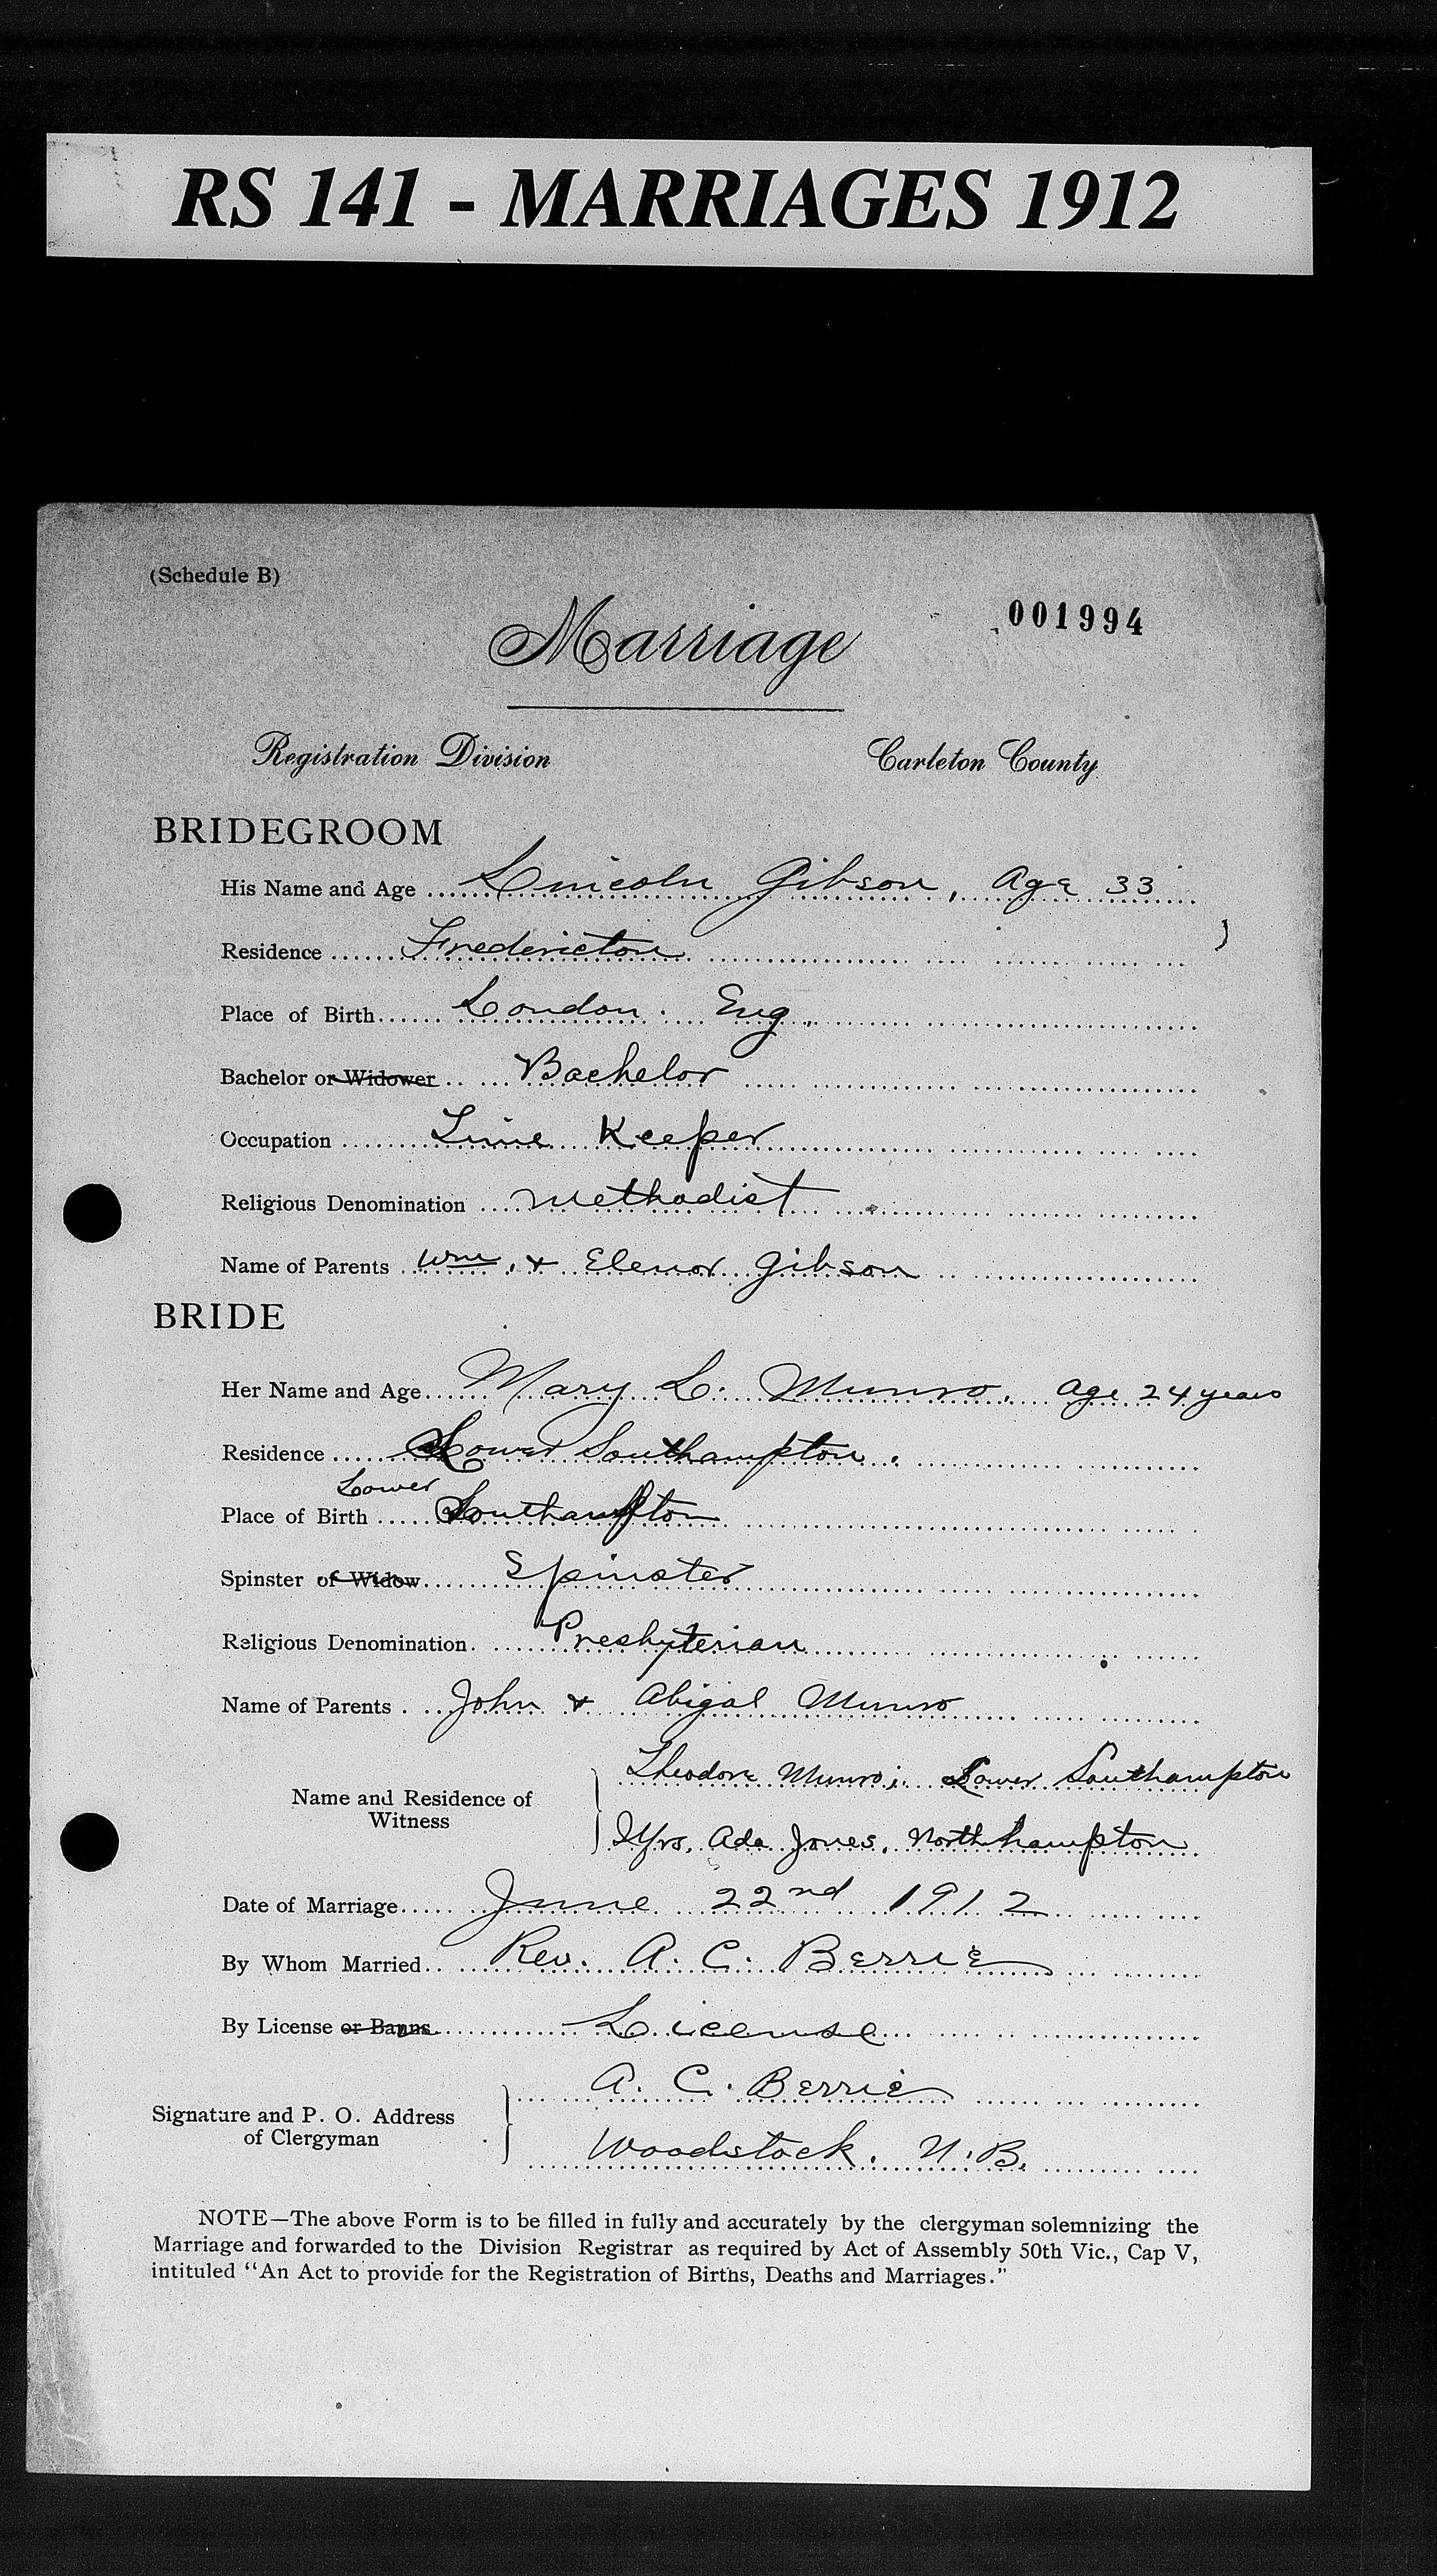 RS 141 - MARRIAGES 1912
(Schedule B)
001994
Marriage
Registration Division Carleton County
BRIDEGROOM
His Name and Age Lincoln Gibson, Age 33
Residence Fredericton
Place of Birth London. Eng.
Bachelor or Widower Bachelor
Occupation Time Keeper
Religious Denomination Methodist
Name of Parents Wm. & Elenor Gibson
BRIDE
Her Name and Age Mary L. Munro, Age 24 years
Residence Lower Southampton.
Lower
Place of Birth Southampton
Spinster of Widow Spinster
Religious Denomination. Presbyterian
Name of Parents John & Abigal Munro
Theodore Munro, Lower Southampton
Name and Residence of
Witness
Mrs. Ada Jones, Northhampton
Date of Marriage June 22nd 1912
By Whom Married Rev. A. C. Berrie
By License or Banns License
A. C. Berrie
Signature and P. O. Address
of Clergyman
Woodstock. N.B.
NOTE—The above Form is to be filled in fully and accurately by the clergyman solemnizing the
Marriage and forwarded to the Division Registrar as required by Act of Assembly 50th Vic., Cap V,
intituled "An Act to provide for the Registration of Births, Deaths and Marriages."